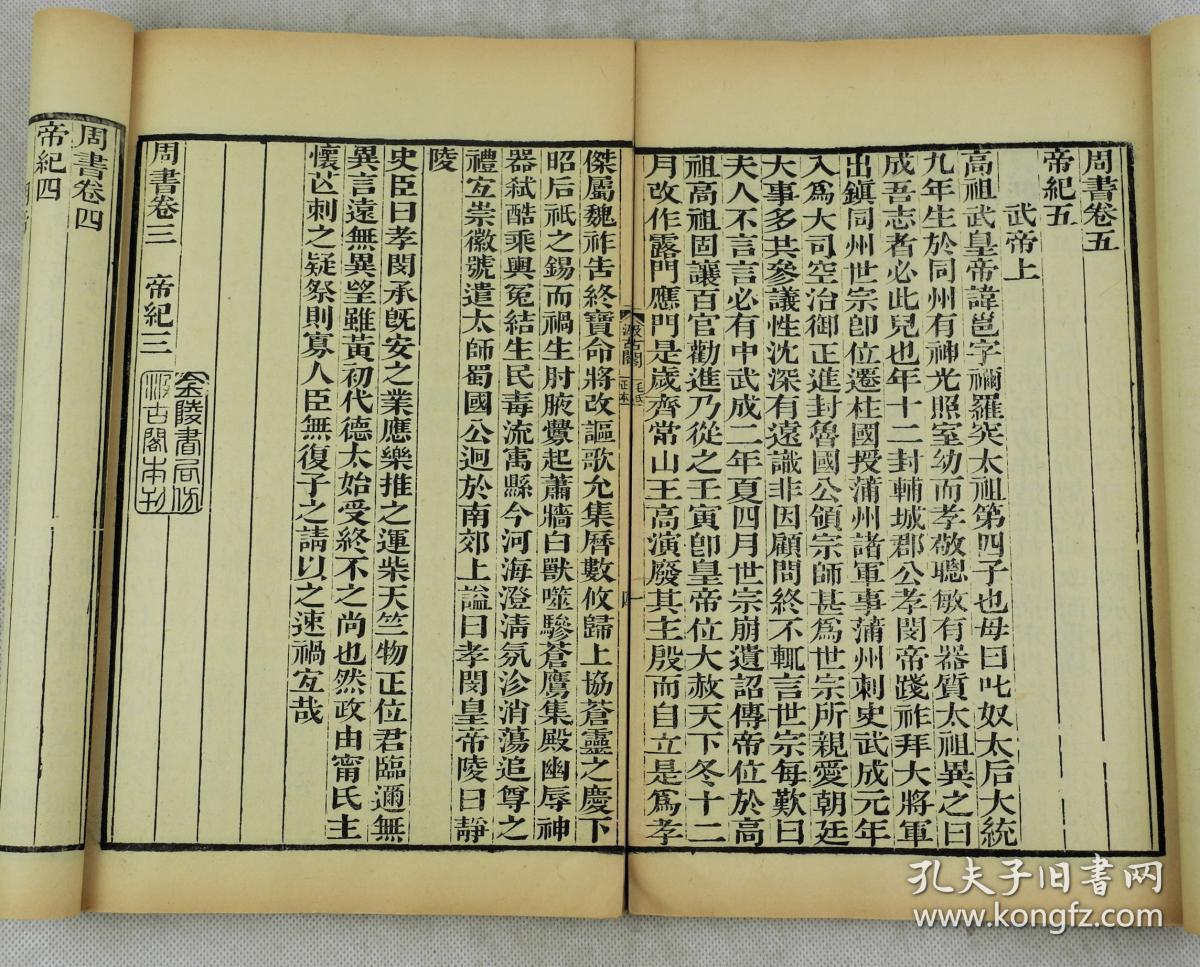 周書卷五
帝紀五
武帝上
高祖武皇帝諱邕字禰羅突太祖第四子也母曰叱奴太后大統
九年生於同州有神光照室幼而孝敬聰敏有器質太祖異之曰
成吾志者必此兒也年十二封輔城郡公孝閔帝踐祚拜大將軍
出鎮同州世宗卽位遷柱國授蒲州諸軍事蒲州刺史武成元年
入爲大司空治御正進封魯國公領宗師甚爲世宗所親愛朝廷
大事多共參議性沈深有遠識非因顧問終不輒言世宗每歎曰
夫人不言言必有中武成二年夏四月世宗崩遺詔傳帝位於高
祖高祖固讓百官勸進乃從之壬寅卽皇帝位大赦天下冬十二
月改作露門應門是歲齊常山王高演廢其主殷而自立是爲孝
汲古閣
毛氏
正本
傑屬魏祚告終寶命將改謳歌允集曆數攸歸上協蒼靈之慶下
昭后祇之錫而禍生肘腋釁起蕭牆白獸噬驂蒼鷹集殿幽辱神
器弒酷乘輿冤結生民毒流寓縣今河海澄清氛沴消蕩追尊之
禮宜崇徽號遣太師蜀國公迥於南郊上謚曰孝閔皇帝陵曰靜
陵
史臣曰孝閔承旣安之業應樂推之運柴天竺物正位君臨邇無
異言遠無異望雖黃初代德太始受終不之尚也然政由甯氏主
懷芒刺之疑祭則寡人臣無復子之請以之速禍宜哉
周書卷三 帝紀三
金陵書局仿
汲古閣本刊
周書卷四
帝紀四
孔夫子旧书网
www.kongfz.com